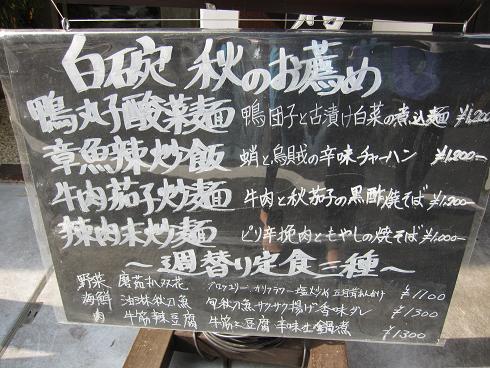 白碗 秋のお薦め
鴨丸子酸菜麺 鴨団子と古漬け白菜の煮込麺 ¥1,200
章魚辣炒飯 蛸と烏賊の辛味チャーハン ¥1,200-
牛肉茄子炒麺 牛肉と秋茄子の黒酢焼そば ¥1,200-
辣肉末炒麺 ピリ辛挽肉ともやしの焼そば ¥1,000-
〜週替り定食三種〜
野菜 ブロッコリー カリフラワー塩炒め ¥1100
海鮮 油淋秋刀魚 旬秋刀魚サクサク揚げ香味ダレ ¥1300
肉 牛筋辣豆腐 牛筋と豆腐辛味土鍋煮 ¥1300